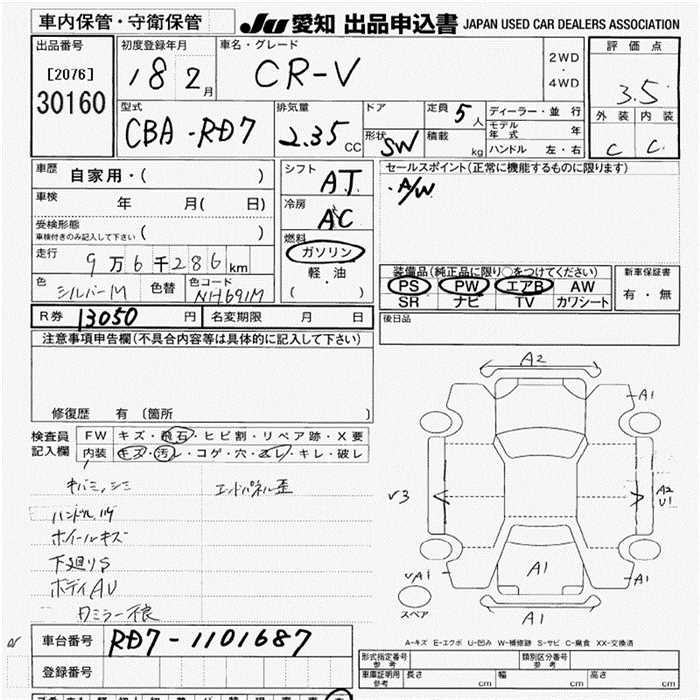 車内保管・守衛保管 JU 愛知 出品申込書 JAPAN USED CAR DEALERS ASSOCIATION
出品番号 [2076] 30160
初度登録年月 18 2月
車名・グレード CR-V
2WD・4WD
評価点 3.5
外装 C 内装 C
型式 CBA-RD7
排気量 2.35 CC
ドア
形状 SW
定員 5人
積載 kg
ディーラー・並行
モデル年式 年
ハンドル 左・右
車歴 自家用・( )
車検 年 月( 日)
受検形態
車検付きのみ記入して下さい ( )
走行 9万6千286km
色 シルバーM 色替 色コード NH691M
シフト AT
冷房 AC
燃料 ガソリン
軽・油
( )
セールスポイント(正常に機能するものに限ります)
・A/W
装備品(純正品に限り○をつけてください)
PS PW エアB AW
SR ナビ TV カワシート
新車保証書
有・無
R券 13050 円 名変期限 月 日
後日品
注意事項申告欄(不具合内容等は具体的に記入して下さい)
修復歴 有 〔箇所 〕
検査員記入欄
FW キズ・飛石・ヒビ割・リペア跡・X要
内装 キズ・汚レ・コゲ・穴・スレ・キレ・破レ
キバミ、シミ エンドパネル歪
ハンドル
ホイールキズ
下廻りS
ボディAU
ミラー不良
A2
A1
V3
A2
U1
A1
VA1
A1
A1
スペア
A-キズ E-エクボ U-凹み W-補修跡 S-サビ C-腐食 XX-交換済
車台番号 RD7-1101687
登録番号
形式指定番号 参考 類別区分番号 参考
車庫証明用 参考 長さ cm 幅 cm 高さ cm